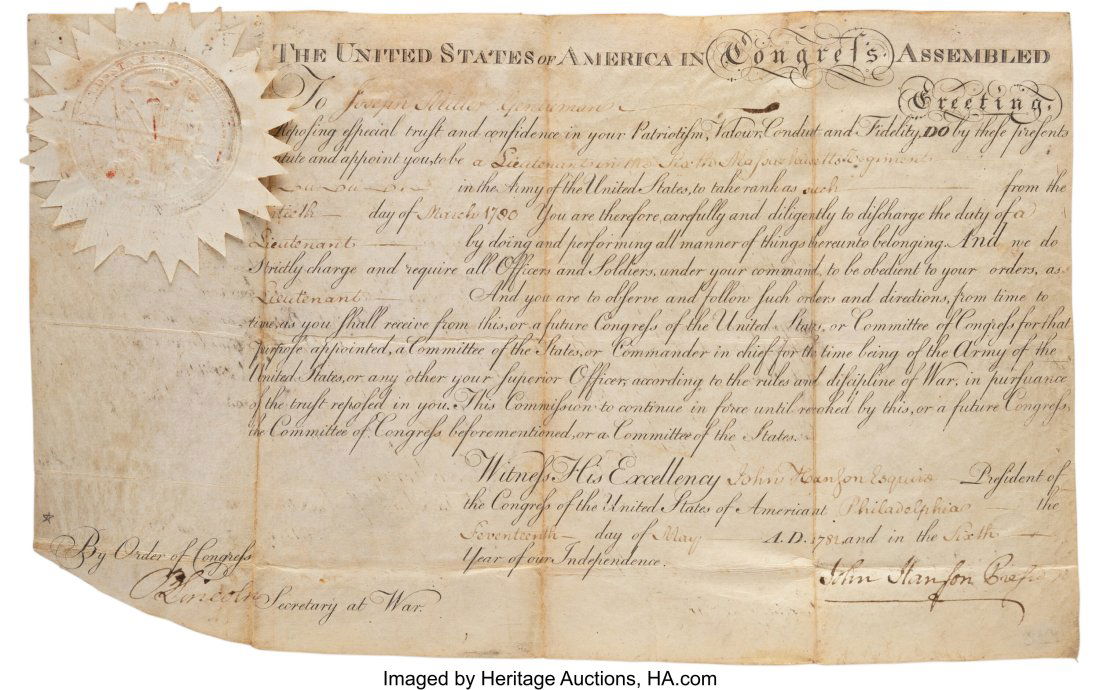 THE UNITED STATES OF AMERICA IN Congreſs ASSEMBLED
Greeting.
To Joseph Miller Gentleman
Repoſing eſpecial truſt and confidence in your Patriotiſm, Valour, Conduct and Fidelity, DO by theſe preſents
ſtitute and appoint you, to be a Lieutenant in the Sixth Massachusetts Regiment
in the Army of the United States, to take rank as such from the
day of March 1780 You are therefore, carefully and diligently to diſcharge the duty of a
Lieutenant by doing and performing all manner of things thereunto belonging. And we do
Strictly charge and require all Officers and Soldiers, under your command, to be obedient to your orders, as
Lieutenant And you are to obſerve and follow ſuch orders and directions, from time to
time, as you ſhall receive from this, or a future Congreſs of the United States, or Committee of Congreſs for that
purpoſe appointed, a Committee of the States, or Commander in chief for the time being of the Army of the
United States, or any other your ſuperior Officer, according to the rules and diſcipline of War, in purſuance
of the truſt repoſed in you. This Commiſſion to continue in force until revoked by this, or a future Congreſs,
the Committee of Congreſs beforementioned, or a Committee of the States.
Witneſs His Excellency John Hanſon Esquire Preſident of
the Congreſs of the United States of America at Philadelphia the
Seventeenth day of May A.D. 1782, and in the Sixth
Year of our Independence.
By Order of Congreſs
John Hanſon Preſid
B Lincoln Secretary at War.
Imaged by Heritage Auctions, HA.com